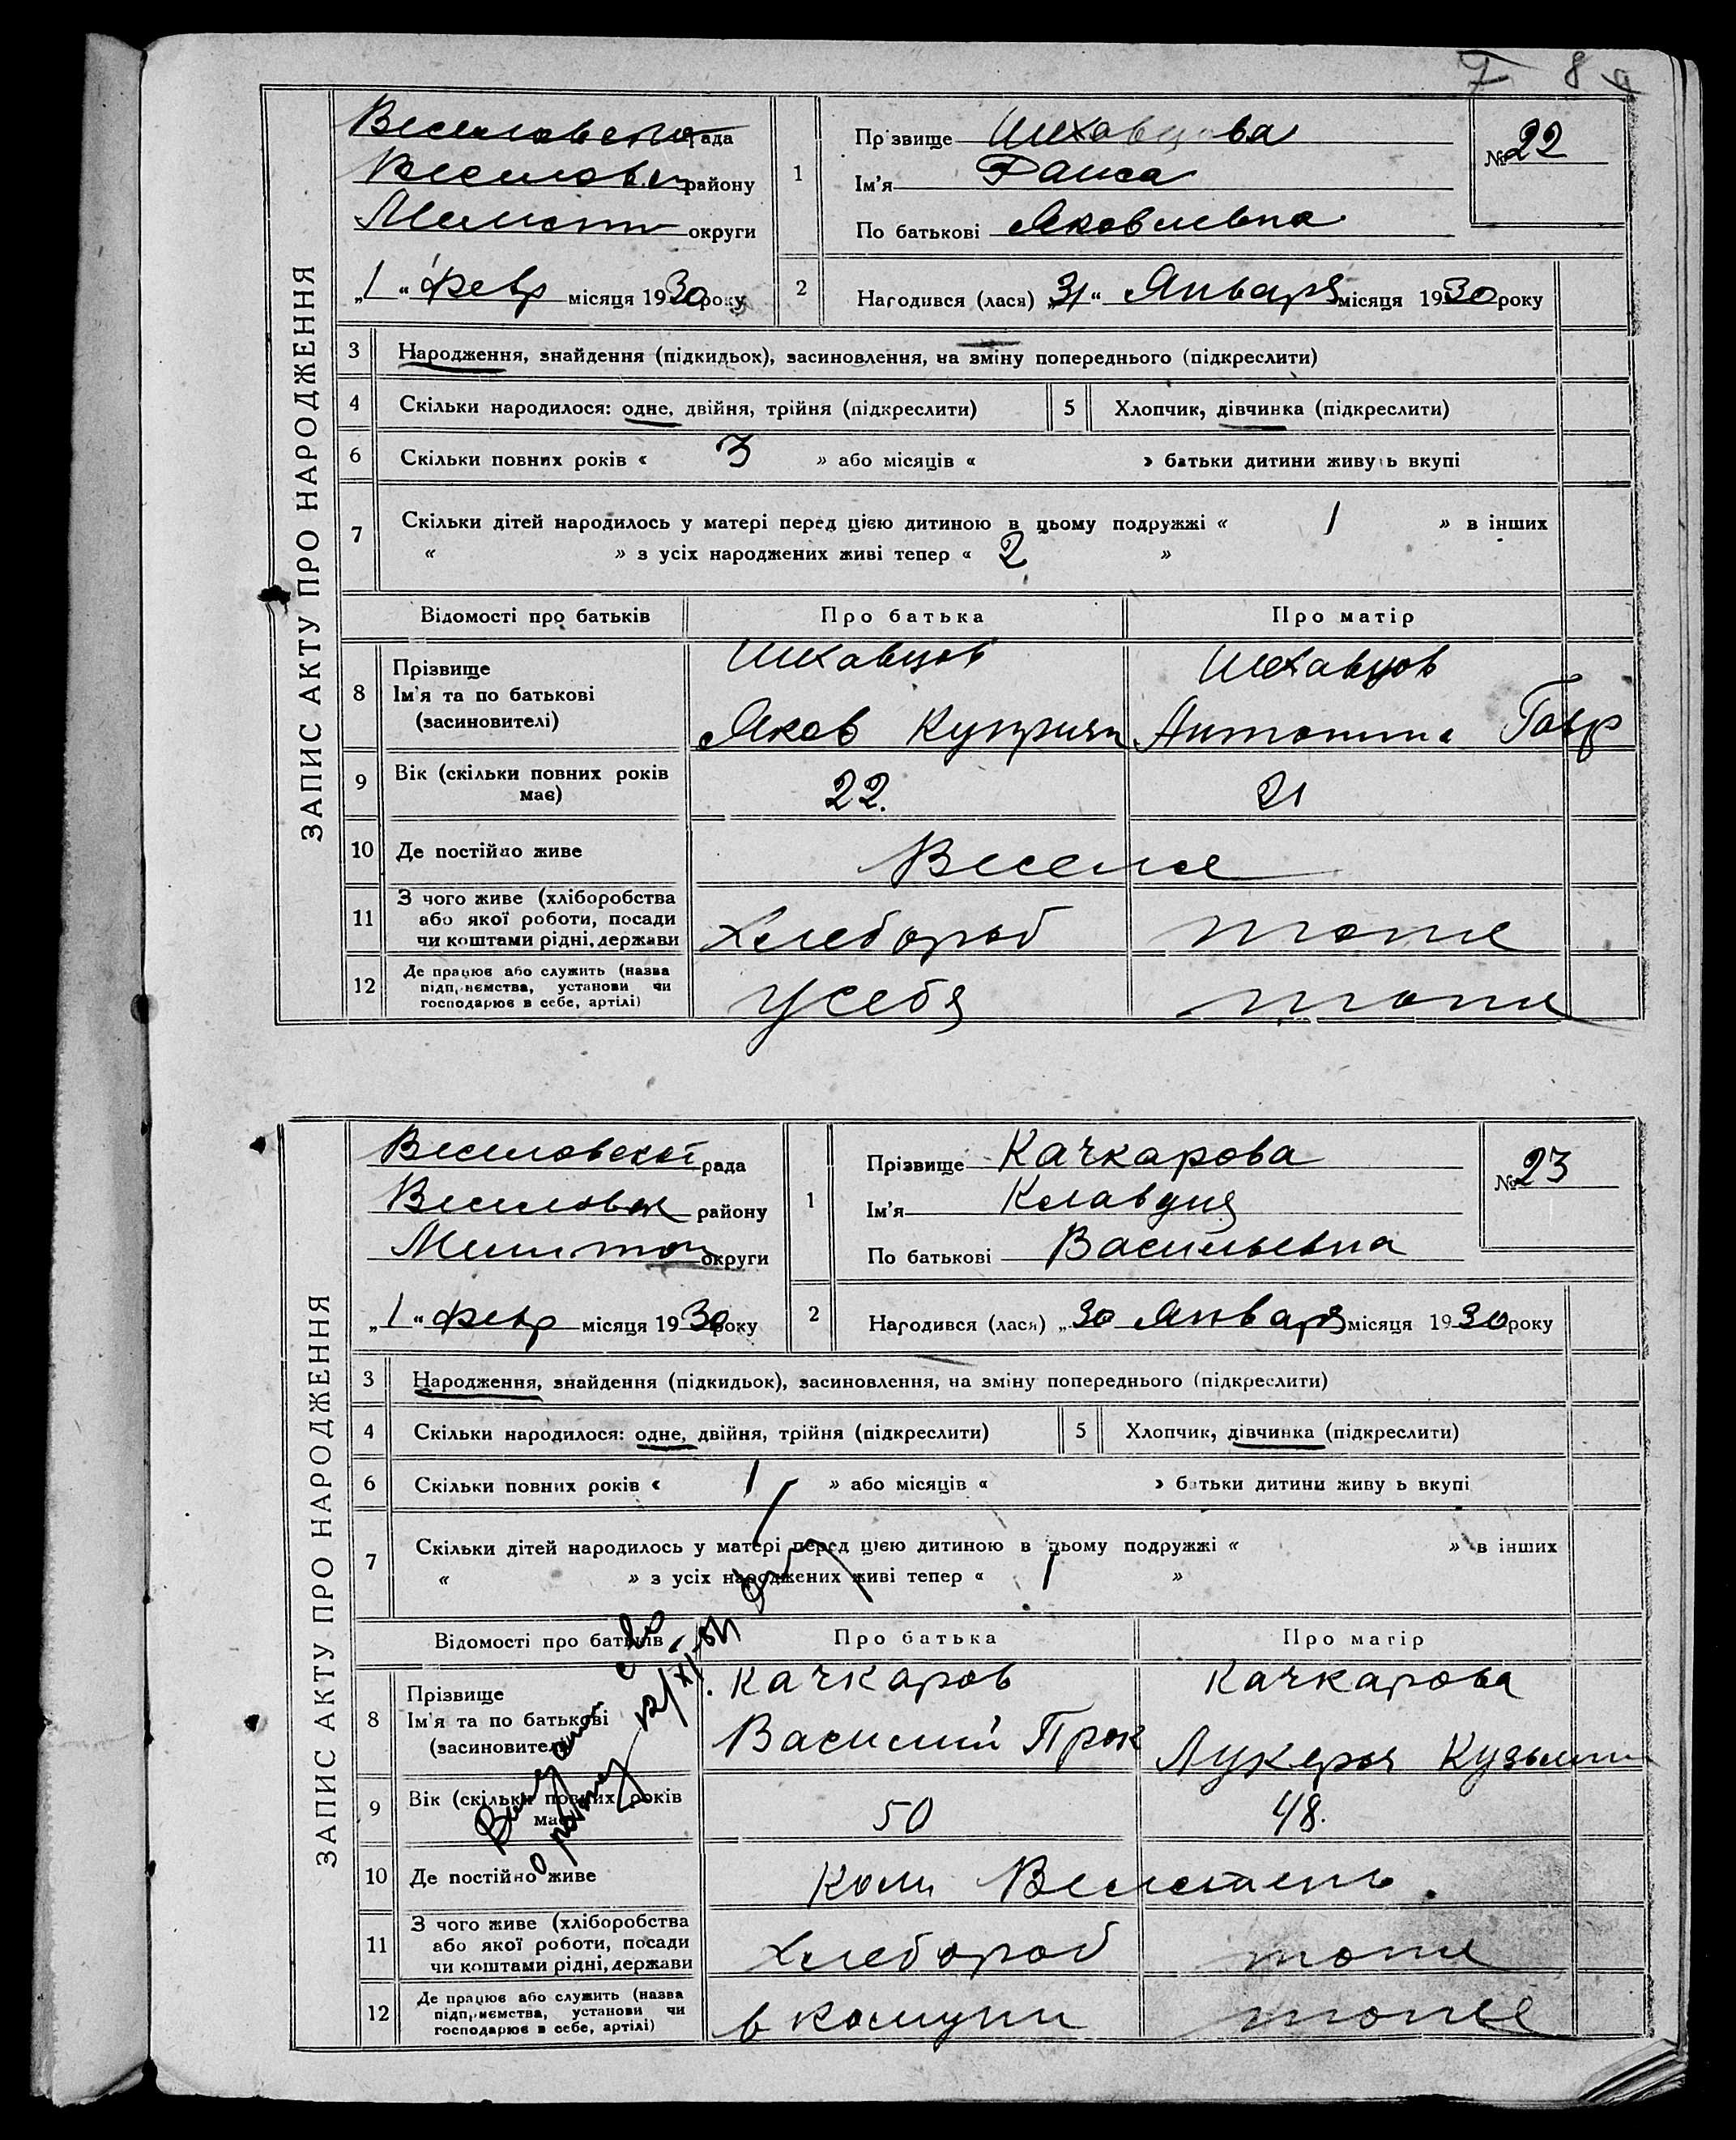 8
Веселовской рада
Веселовск району
Мелитоп округи
„1“ февр місяця 1930 року
ЗАПИС АКТУ ПРО НАРОДЖЕННЯ
1
Прізвище Шеховцова
Ім'я Раиса
По батькові Яковлевна
№ 22
2
Народився (лася) „31“ Января місяця 1930 року
3 Народження, знайдення (підкидьок), засиновлення, на зміну попереднього (підкреслити)
4 Скільки народилося: одне, двійня, трійня (підкреслити) 5 Хлопчик, дівчинка (підкреслити)
6 Скільки повних років « 3 » або місяців « » батьки дитини живуть вкупі
7 Скільки дітей народилось у матері перед цією дитиною в цьому подружжі « 1 » в інших
« » з усіх народжених живі тепер « 2 »
Відомості про батьків Про батька Про матір
8 Прізвище Шеховцов Шеховцов
Ім'я та по батькові Яков Куприян Антонина Гавр
(засиновителі)
9 Вік (скільки повних років має) 22. 21
10 Де постійно живе Веселое
11 З чого живе (хліборобства або якої роботи, посади чи коштами рідні, держави Хлебороб тоже
12 Де працює або служить (назва підприємства, установи чи господарює в себе, артілі) У себя тоже
Веселовской рада
Веселовск району
Мелитоп округи
„1“ февр місяця 1930 року
ЗАПИС АКТУ ПРО НАРОДЖЕННЯ
1
Прізвище Качкарова
Ім'я Клавдия
По батькові Васильевна
№ 23
2
Народився (лася) „30 Января місяця 1930 року
3 Народження, знайдення (підкидьок), засиновлення, на зміну попереднього (підкреслити)
4 Скільки народилося: одне, двійня, трійня (підкреслити) 5 Хлопчик, дівчинка (підкреслити)
6 Скільки повних років « 1 » або місяців « » батьки дитини живуть вкупі
7 Скільки дітей народилось у матері перед цією дитиною в цьому подружжі « » в інших
« » з усіх народжених живі тепер « 1 »
Відомості про батьків Про батька Про матір
8 Прізвище Качкаров Качкарова
Ім'я та по батькові Василий Прок Лукерья Кузьмин
(засиновителі)
9 Вік (скільки повних років має) 50 48.
10 Де постійно живе Ком
11 З чого живе (хліборобства або якої роботи, посади чи коштами рідні, держави Хлебороб тоже
12 Де працює або служить (назва підприємства, установи чи господарює в себе, артілі) в комуни тоже